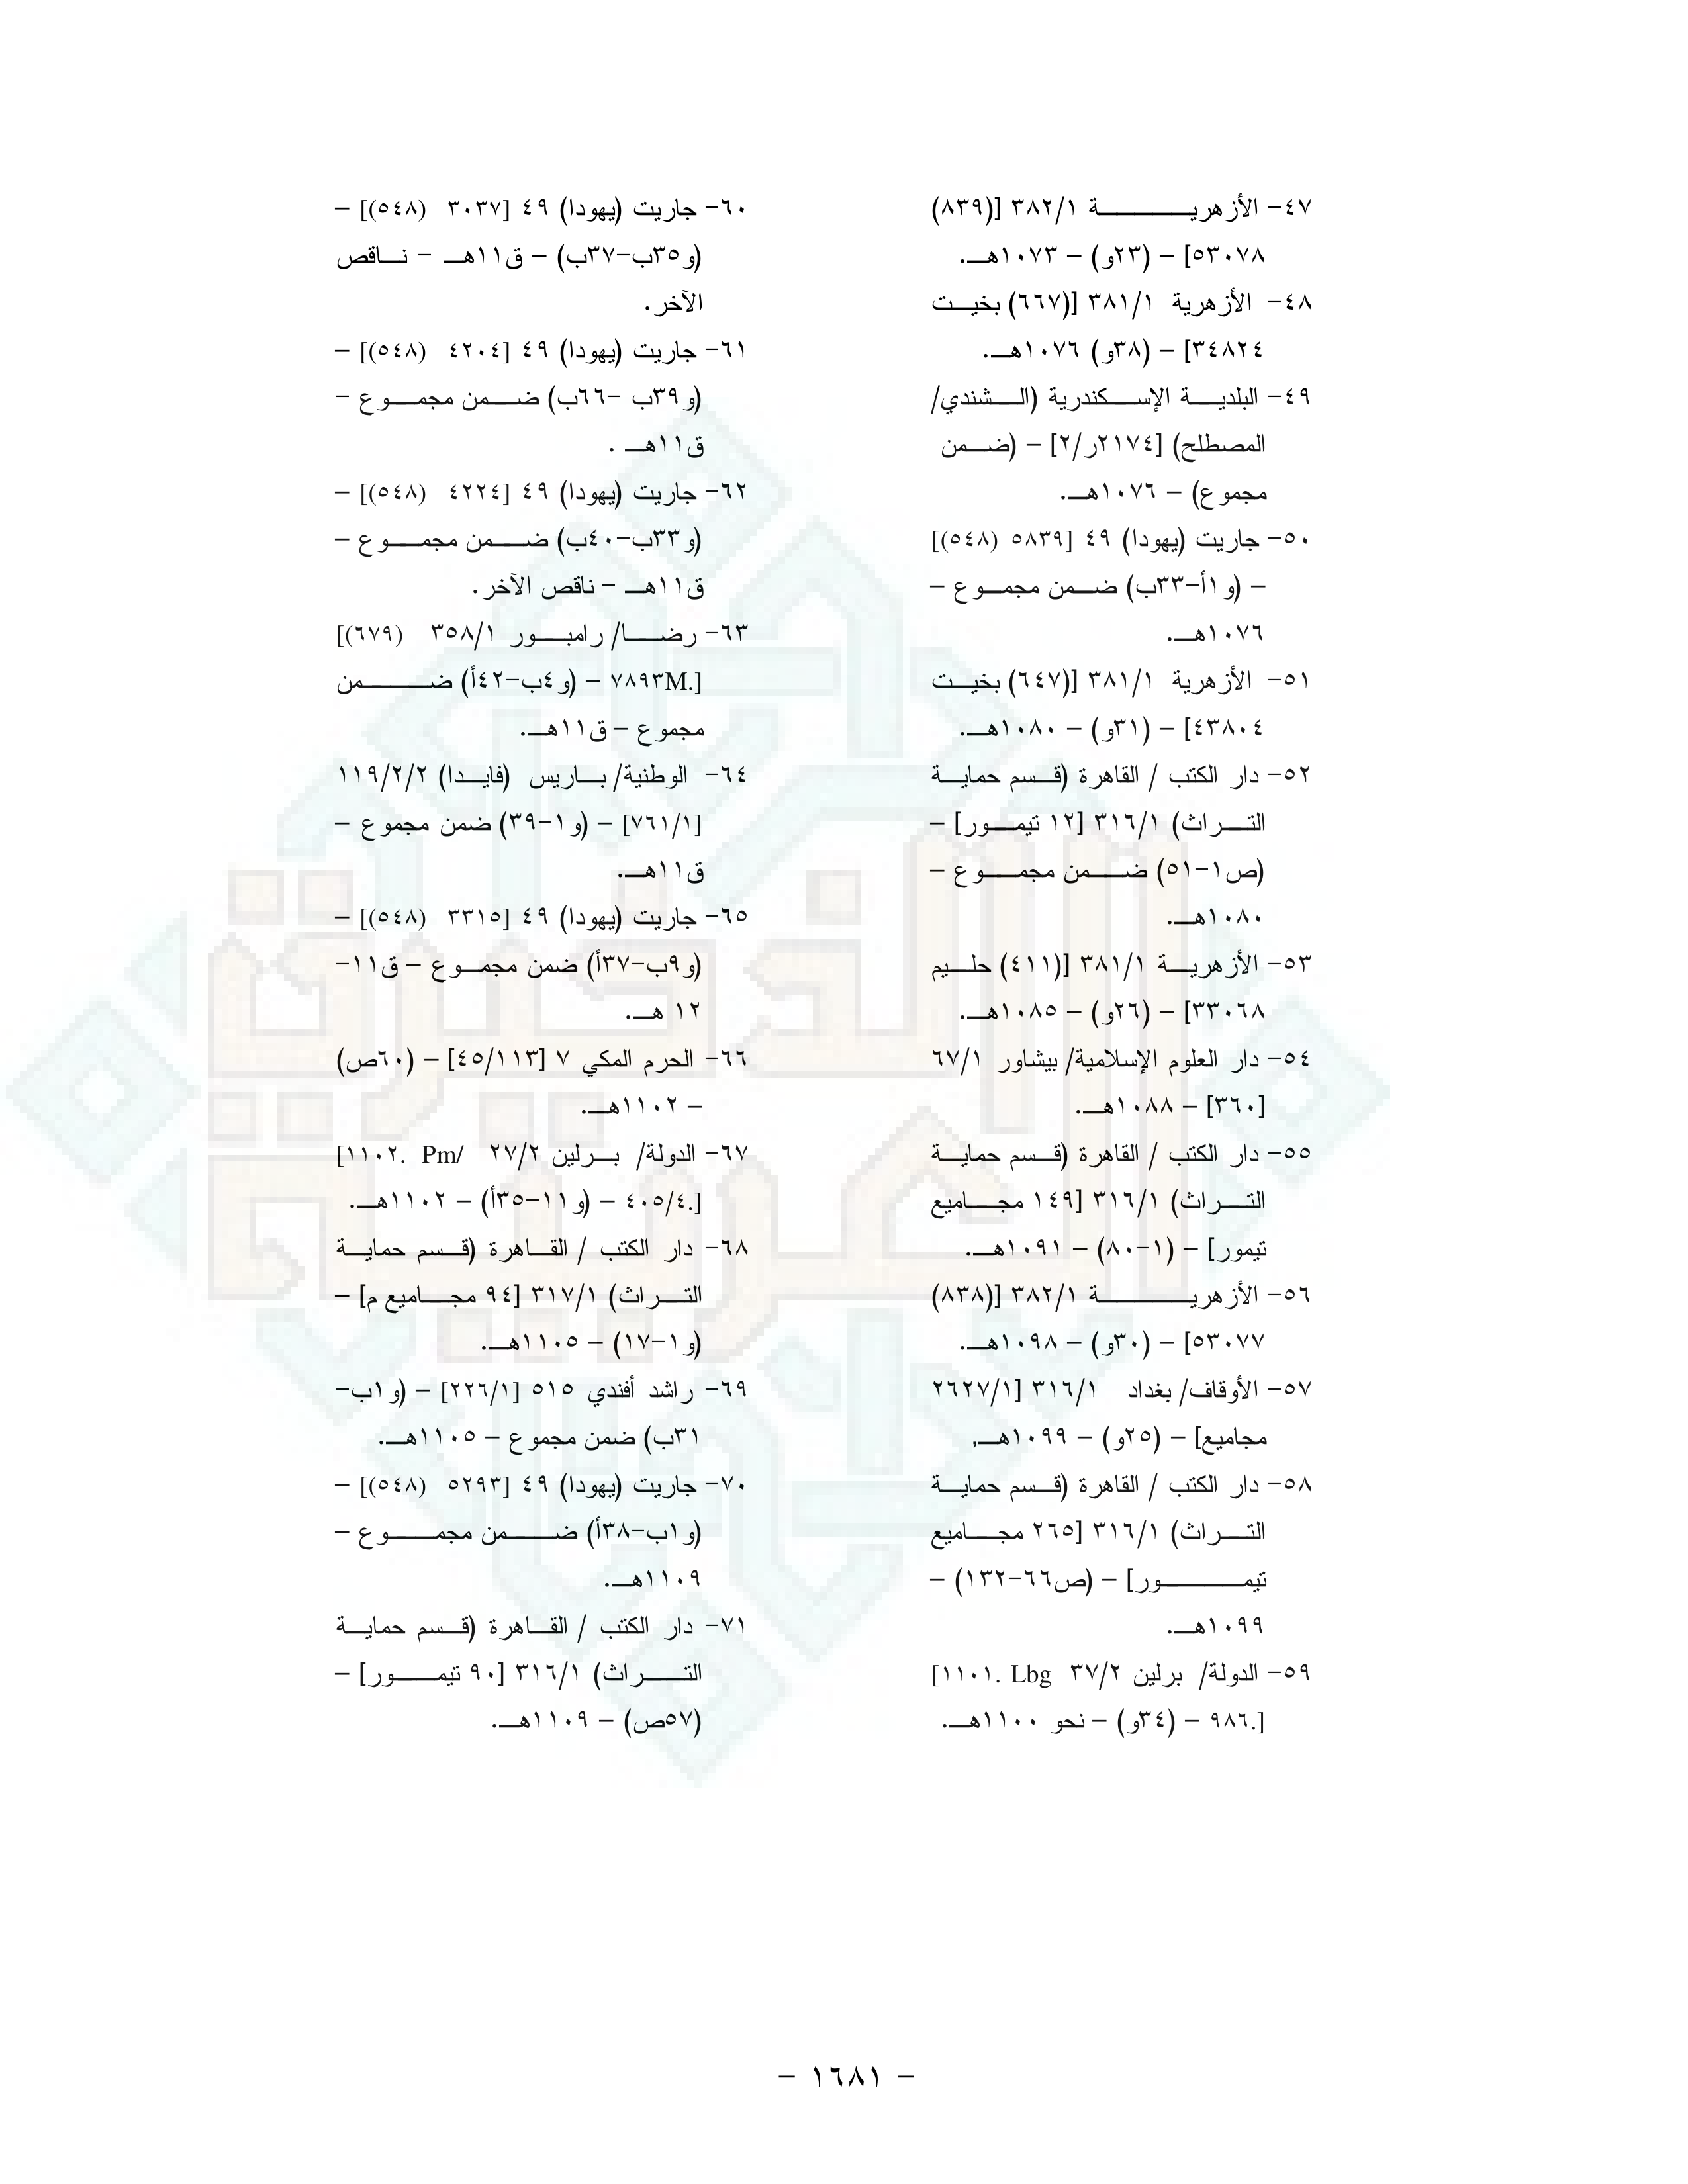 ٤٧- الأزهرية ٣٨٢/١ [(٨٣٩)
٥٣٠٧٨] – (٢٣و) – ١٠٧٣هـ.
٤٨- الأزهرية ٣٨١/١ [(٦٦٧) بخيت
٣٤٨٢٤] – (٣٨و) ١٠٧٦هـ.
٤٩- البلدية الإسكندرية (الشندي/
المصطلح) [٢١٧٤ر/٢] – (ضمن
مجموع) – ١٠٧٦هـ.
٥٠- جاريت (يهودا) ٤٩ [٥٨٣٩ (٥٤٨)]
– (و١أ-٣٣ب) ضمن مجموع –
١٠٧٦هـ.
٥١- الأزهرية ٣٨١/١ [(٦٤٧) بخيت
٤٣٨٠٤] – (٣١و) – ١٠٨٠هـ.
٥٢- دار الكتب / القاهرة (قسم حماية
التراث) ٣١٦/١ [١٢ تيمور] –
(ص١-٥١) ضمن مجموع –
١٠٨٠هـ.
٥٣- الأزهرية ٣٨١/١ [(٤١١) حليم
٣٣٠٦٨] – (٢٦و) – ١٠٨٥هـ.
٥٤- دار العلوم الإسلامية/ بيشاور ٦٧/١
[٣٦٠] – ١٠٨٨هـ.
٥٥- دار الكتب / القاهرة (قسم حماية
التراث) ٣١٦/١ [١٤٩ مجاميع
تيمور] – (١-٨٠) – ١٠٩١هـ.
٥٦- الأزهرية ٣٨٢/١ [(٨٣٨)
٥٣٠٧٧] – (٣٠و) – ١٠٩٨هـ.
٥٧- الأوقاف/ بغداد ٣١٦/١ [٢٦٢٧/١
مجاميع] – (٢٥و) – ١٠٩٩هـ,
٥٨- دار الكتب / القاهرة (قسم حماية
التراث) ٣١٦/١ [٢٦٥ مجاميع
تيمور] – (ص٦٦-١٣٢) –
١٠٩٩هـ.
٥٩- الدولة/ برلين ٣٧/٢ [١١٠١. Lbg
٩٨٦.] – (٣٤و) – نحو ١١٠٠هـ.
٦٠- جاريت (يهودا) ٤٩ [٣٠٣٧ (٥٤٨)] –
(و٣٥ب-٣٧ب) – ق١١هـ – ناقص
الآخر.
٦١- جاريت (يهودا) ٤٩ [٤٢٠٤ (٥٤٨)] –
(و٣٩ب -٦٦ب) ضمن مجموع –
ق١١هـ .
٦٢- جاريت (يهودا) ٤٩ [٤٢٢٤ (٥٤٨)] –
(و٣٣ب-٤٠ب) ضمن مجموع –
ق١١هـ – ناقص الآخر.
٦٣- رضا/ رامبور ٣٥٨/١ [(٦٧٩)
٧٨٩٣M.] – (و٤ب-٤٢أ) ضمن
مجموع – ق١١هـ.
٦٤- الوطنية/ باريس (فايدا) ١١٩/٢/٢
[٧٦١/١] – (و١-٣٩) ضمن مجموع –
ق١١هـ.
٦٥- جاريت (يهودا) ٤٩ [٣٣١٥ (٥٤٨)] –
(و٩ب-٣٧أ) ضمن مجموع – ق١١-
١٢ هـ.
٦٦- الحرم المكي ٧ [٤٥/١١٣] – (٦٠ص)
– ١١٠٢هـ.
٦٧- الدولة/ برلين ٢٧/٢ [١١٠٢. Pm/
٤٠٥/٤.] – (و١١-٣٥أ) – ١١٠٢هـ.
٦٨- دار الكتب / القاهرة (قسم حماية
التراث) ٣١٧/١ [٩٤ مجاميع م] –
(و١-١٧) – ١١٠٥هـ.
٦٩- راشد أفندي ٥١٥ [٢٢٦/١] – (و١ب-
٣١ب) ضمن مجموع – ١١٠٥هـ.
٧٠- جاريت (يهودا) ٤٩ [٥٢٩٣ (٥٤٨)] –
(و١ب-٣٨أ) ضمن مجموع –
١١٠٩هـ.
٧١- دار الكتب / القاهرة (قسم حماية
التراث) ٣١٦/١ [٩٠ تيمور] –
(٥٧ص) – ١١٠٩هـ.
الذخيرة
العربية
– ١٦٨١ –